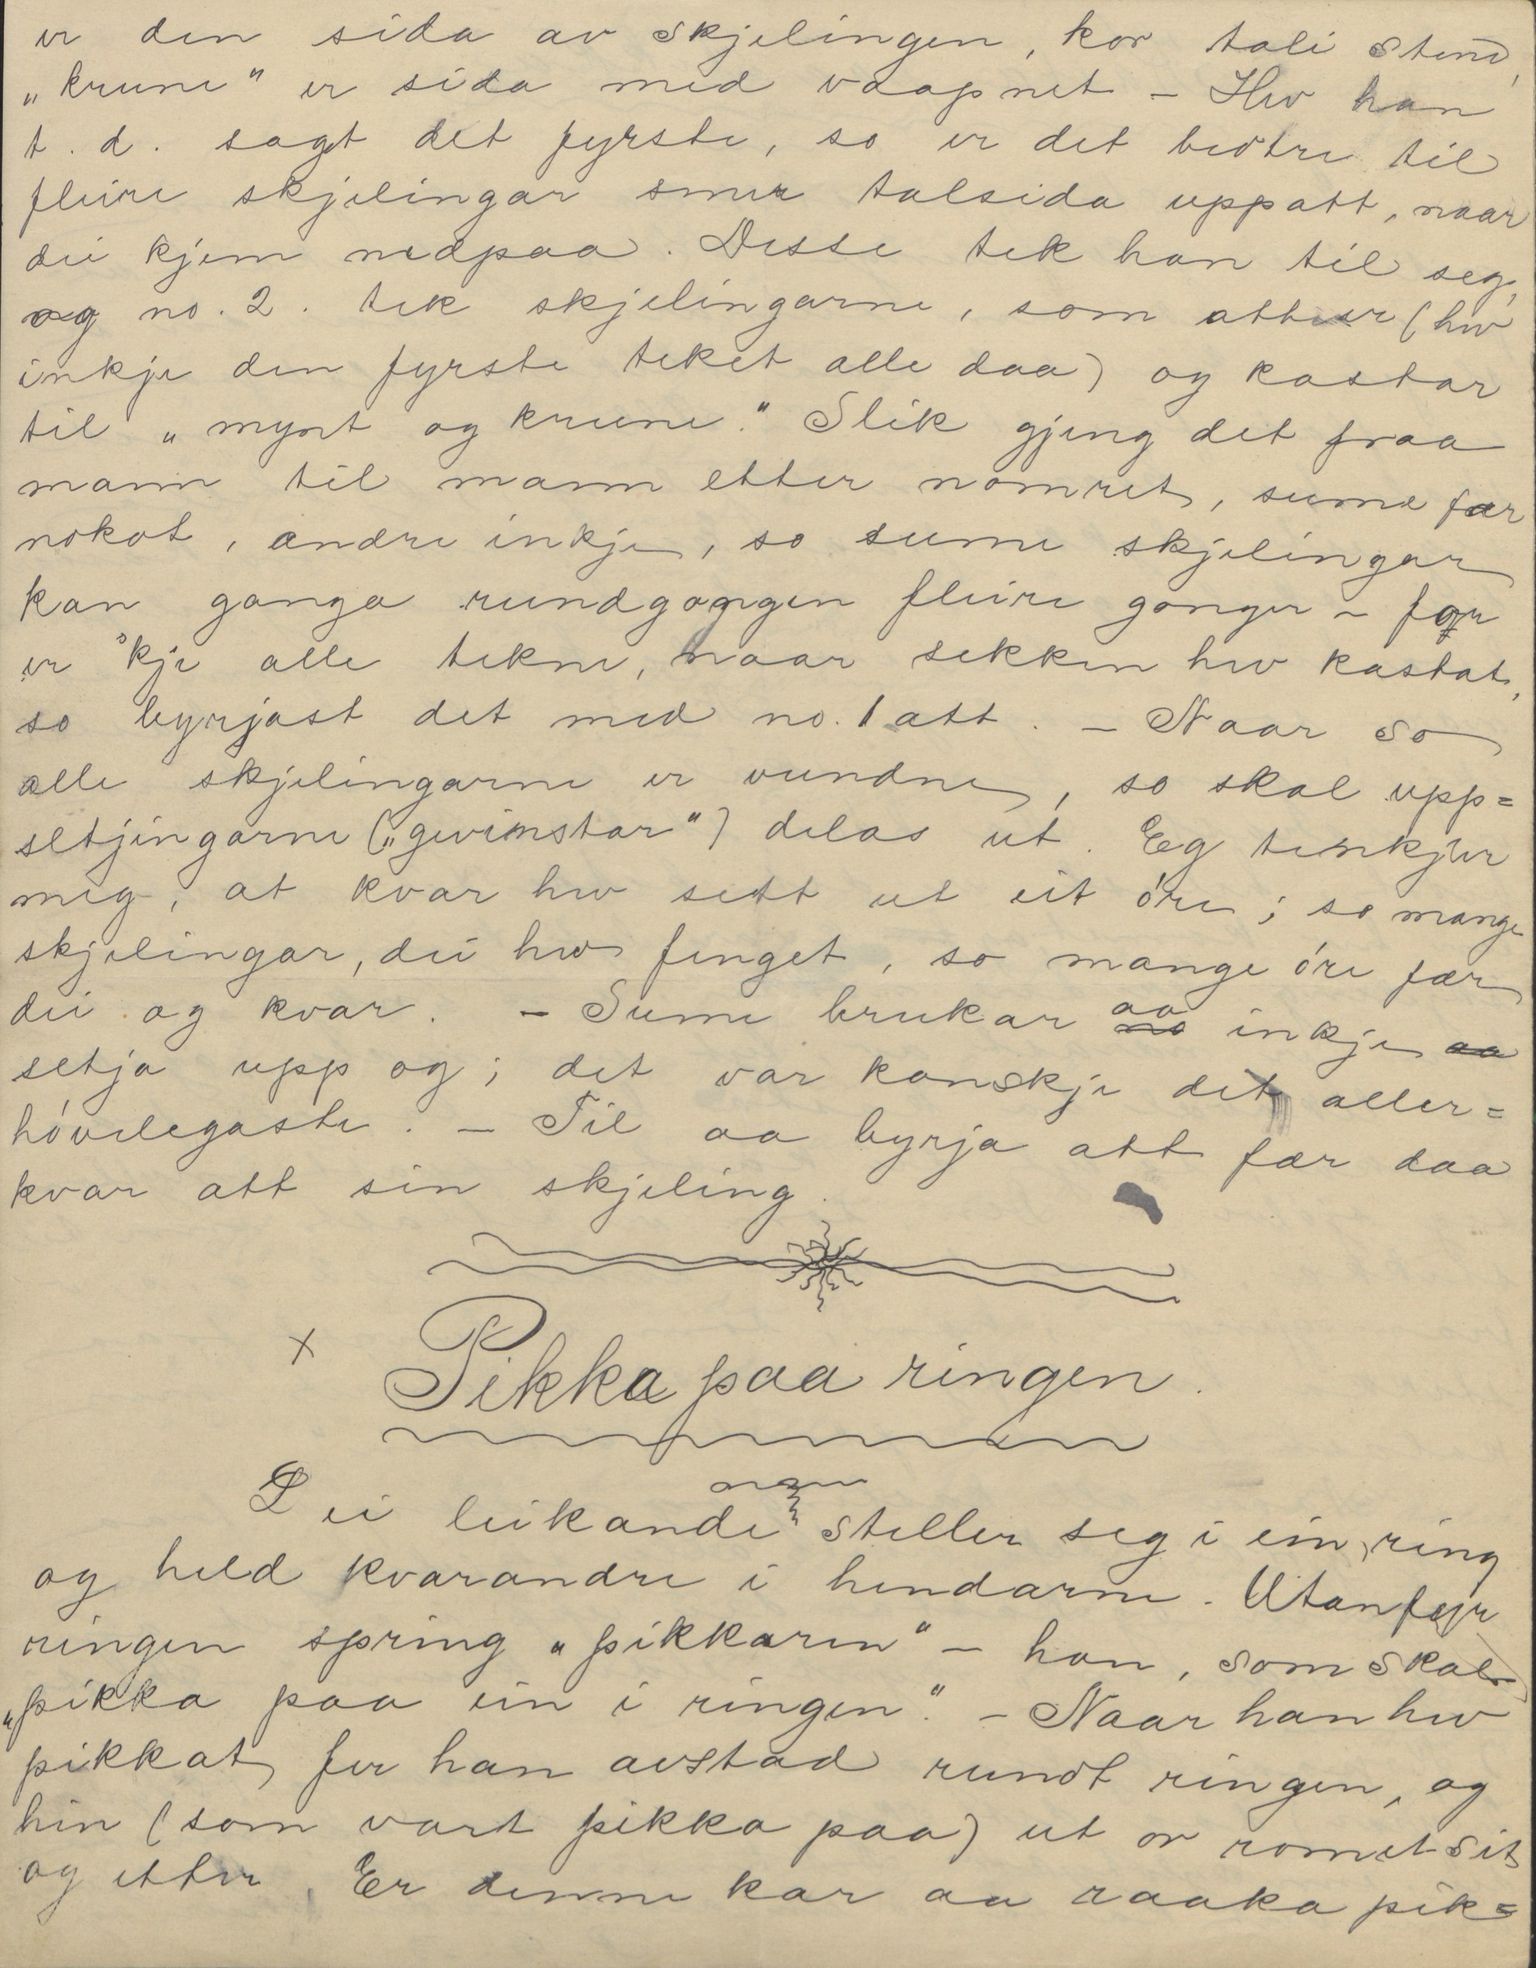 er den sida av skjelingen, kor tali stend,
„krune" er sida med vaapnet - Hev han
t. d. sagt det fyrste, so er det betre til
fleire skjelingar snur talsida uppatt, naar
dei kjem nedpaa. Desse tek han til seg,
og no. 2. tek skjelingarne, som atter er (hev
inkje den fyrste teket alle daa) og kastar
til „mynt og krune." Slik gjeng det fraa
mann til mann etter nomret, sume fær
nokot, andre inkje, so sume skjelingar
kan ganga rundgongen fleire gonger - for
er 'kje alle tekne, naar sekken hev kastat,
so byrjast det med no. 1 att. - Naar so
alle skjelingarne er vundne, so skal upp=
setjingarne („gevinstar") delas ut. Eg tenkjer
meg, at kvar hev sett ut eit óre; so mange
skjelingar, dei hev fenget, so mange óre fær
dei og kvar. - Sume brukar aa inkje
setja upp og; det var kanskje det aller=
hóvelegaste. - Til aa byrja att fær daa
kvar att sin skjeling.
x Pikka paa ringen.
Dei leikande steller seg i ein ring
og held kvarandre i hendarne. Utanfyr
ringen spring „pikkaren" - han, som skal
„pikka paa ein i ringen." - Naar han hev
pikkat, fer han avstad rundt ringen, og
hin (som vart pikka paa) ut or romet sit
og etter. Er denne kar aa raaka pik=